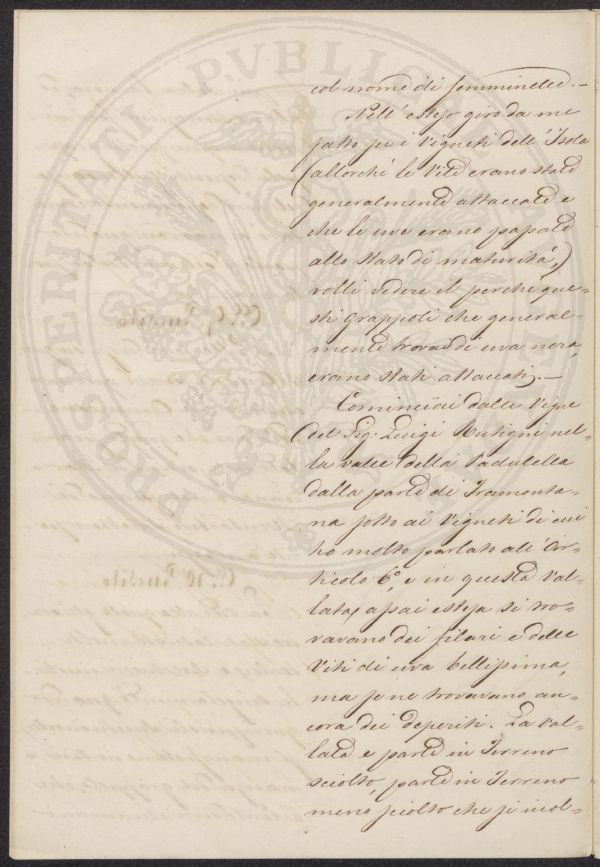 PROSPERITATI PVBLICAE
col nome di femminelle. —
Nell' esteso giro da me
fatto pei Vigneti dell' Isola
(allorchè le Viti erano state
generalmente attaccate e
che le uve erano passate
allo stato di maturità,)
volli vedere il perchè que-
sti Grappoli che general-
mente trovardi uva nera,
erano stati attaccati, —
Cominciai dalle Vigne
del Sig: Luigi nel-
la valle della Padulella
dalla parte di Tramonta-
na sotto ai Vigneti di cui
ho molto parlato all' Ar-
ticolo 6.º, e in questa Val-
lata, assai estesa si tro-
vavano dei filari e delle
Viti di uva bellissima,
ma se ne trovavano an-
cora dei deperiti. La Val-
lata e parte in Terreno
sciolto, parte in Terreno
meno sciolto che si incol-